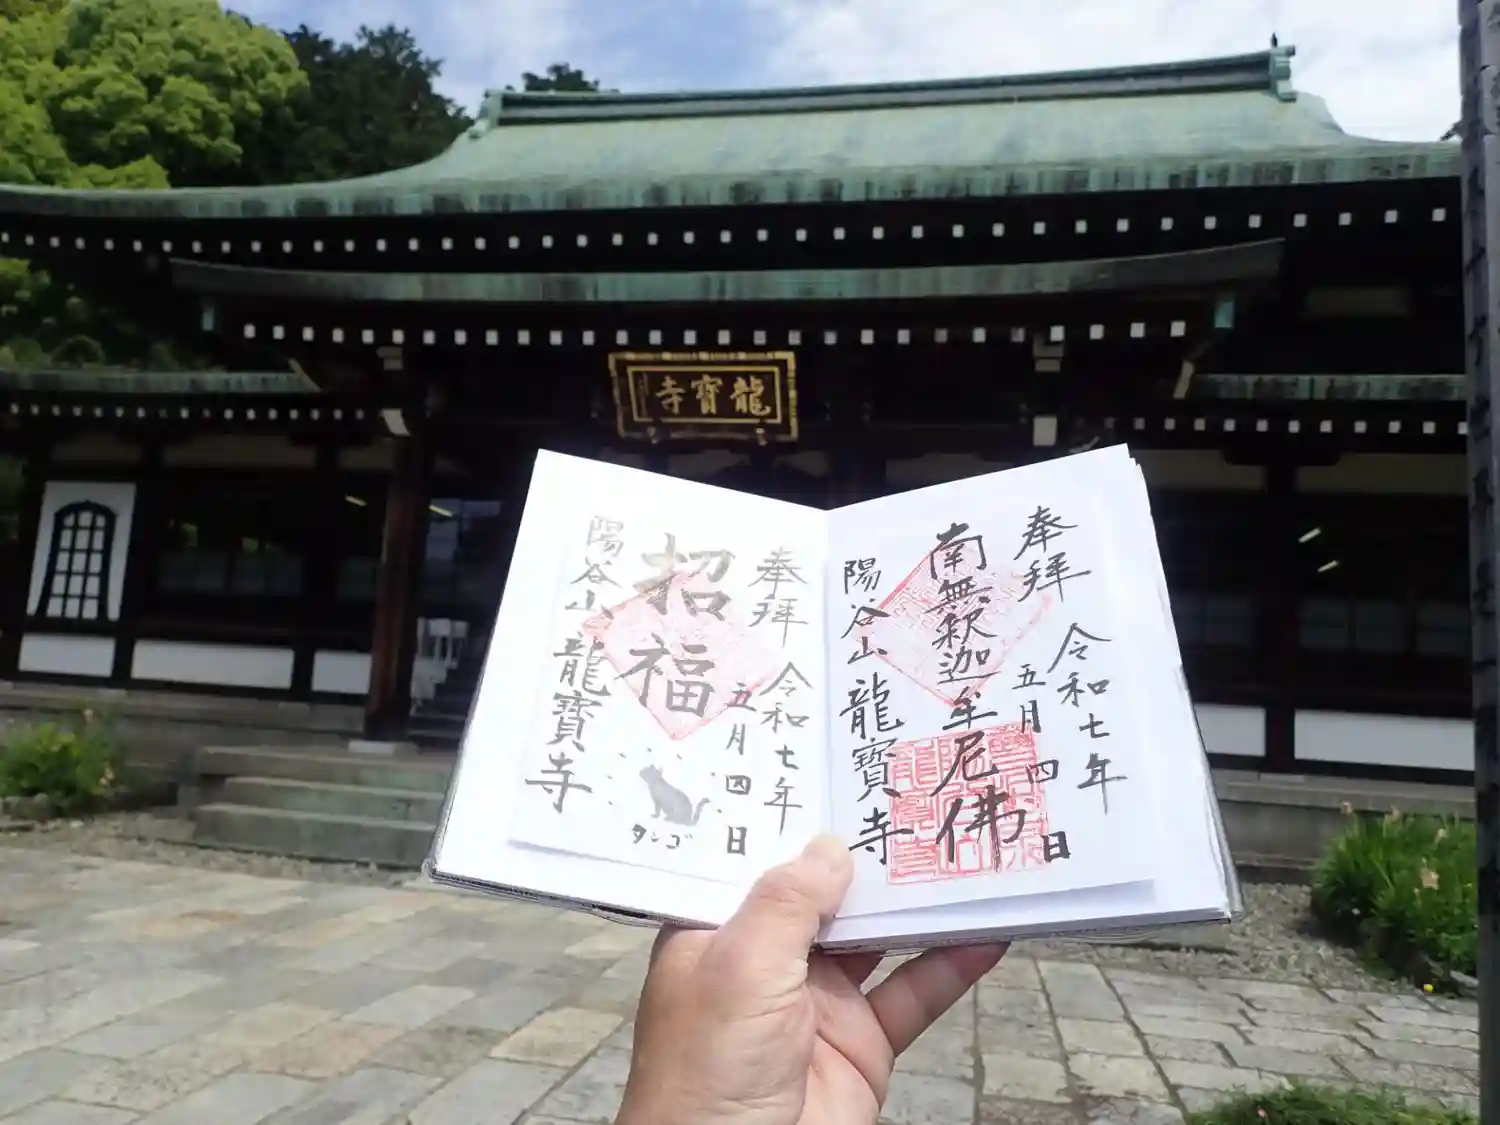 龍寶寺
奉拝
令和七年
五月四日
南無釈迦牟尼佛
陽谷山
龍寶寺
奉拝
令和七年
五月四日
招福
タンゴ
陽谷山
龍寶寺